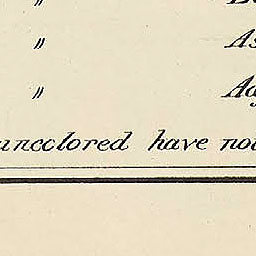 〃
〃 As
〃 Ag
uncolored have not